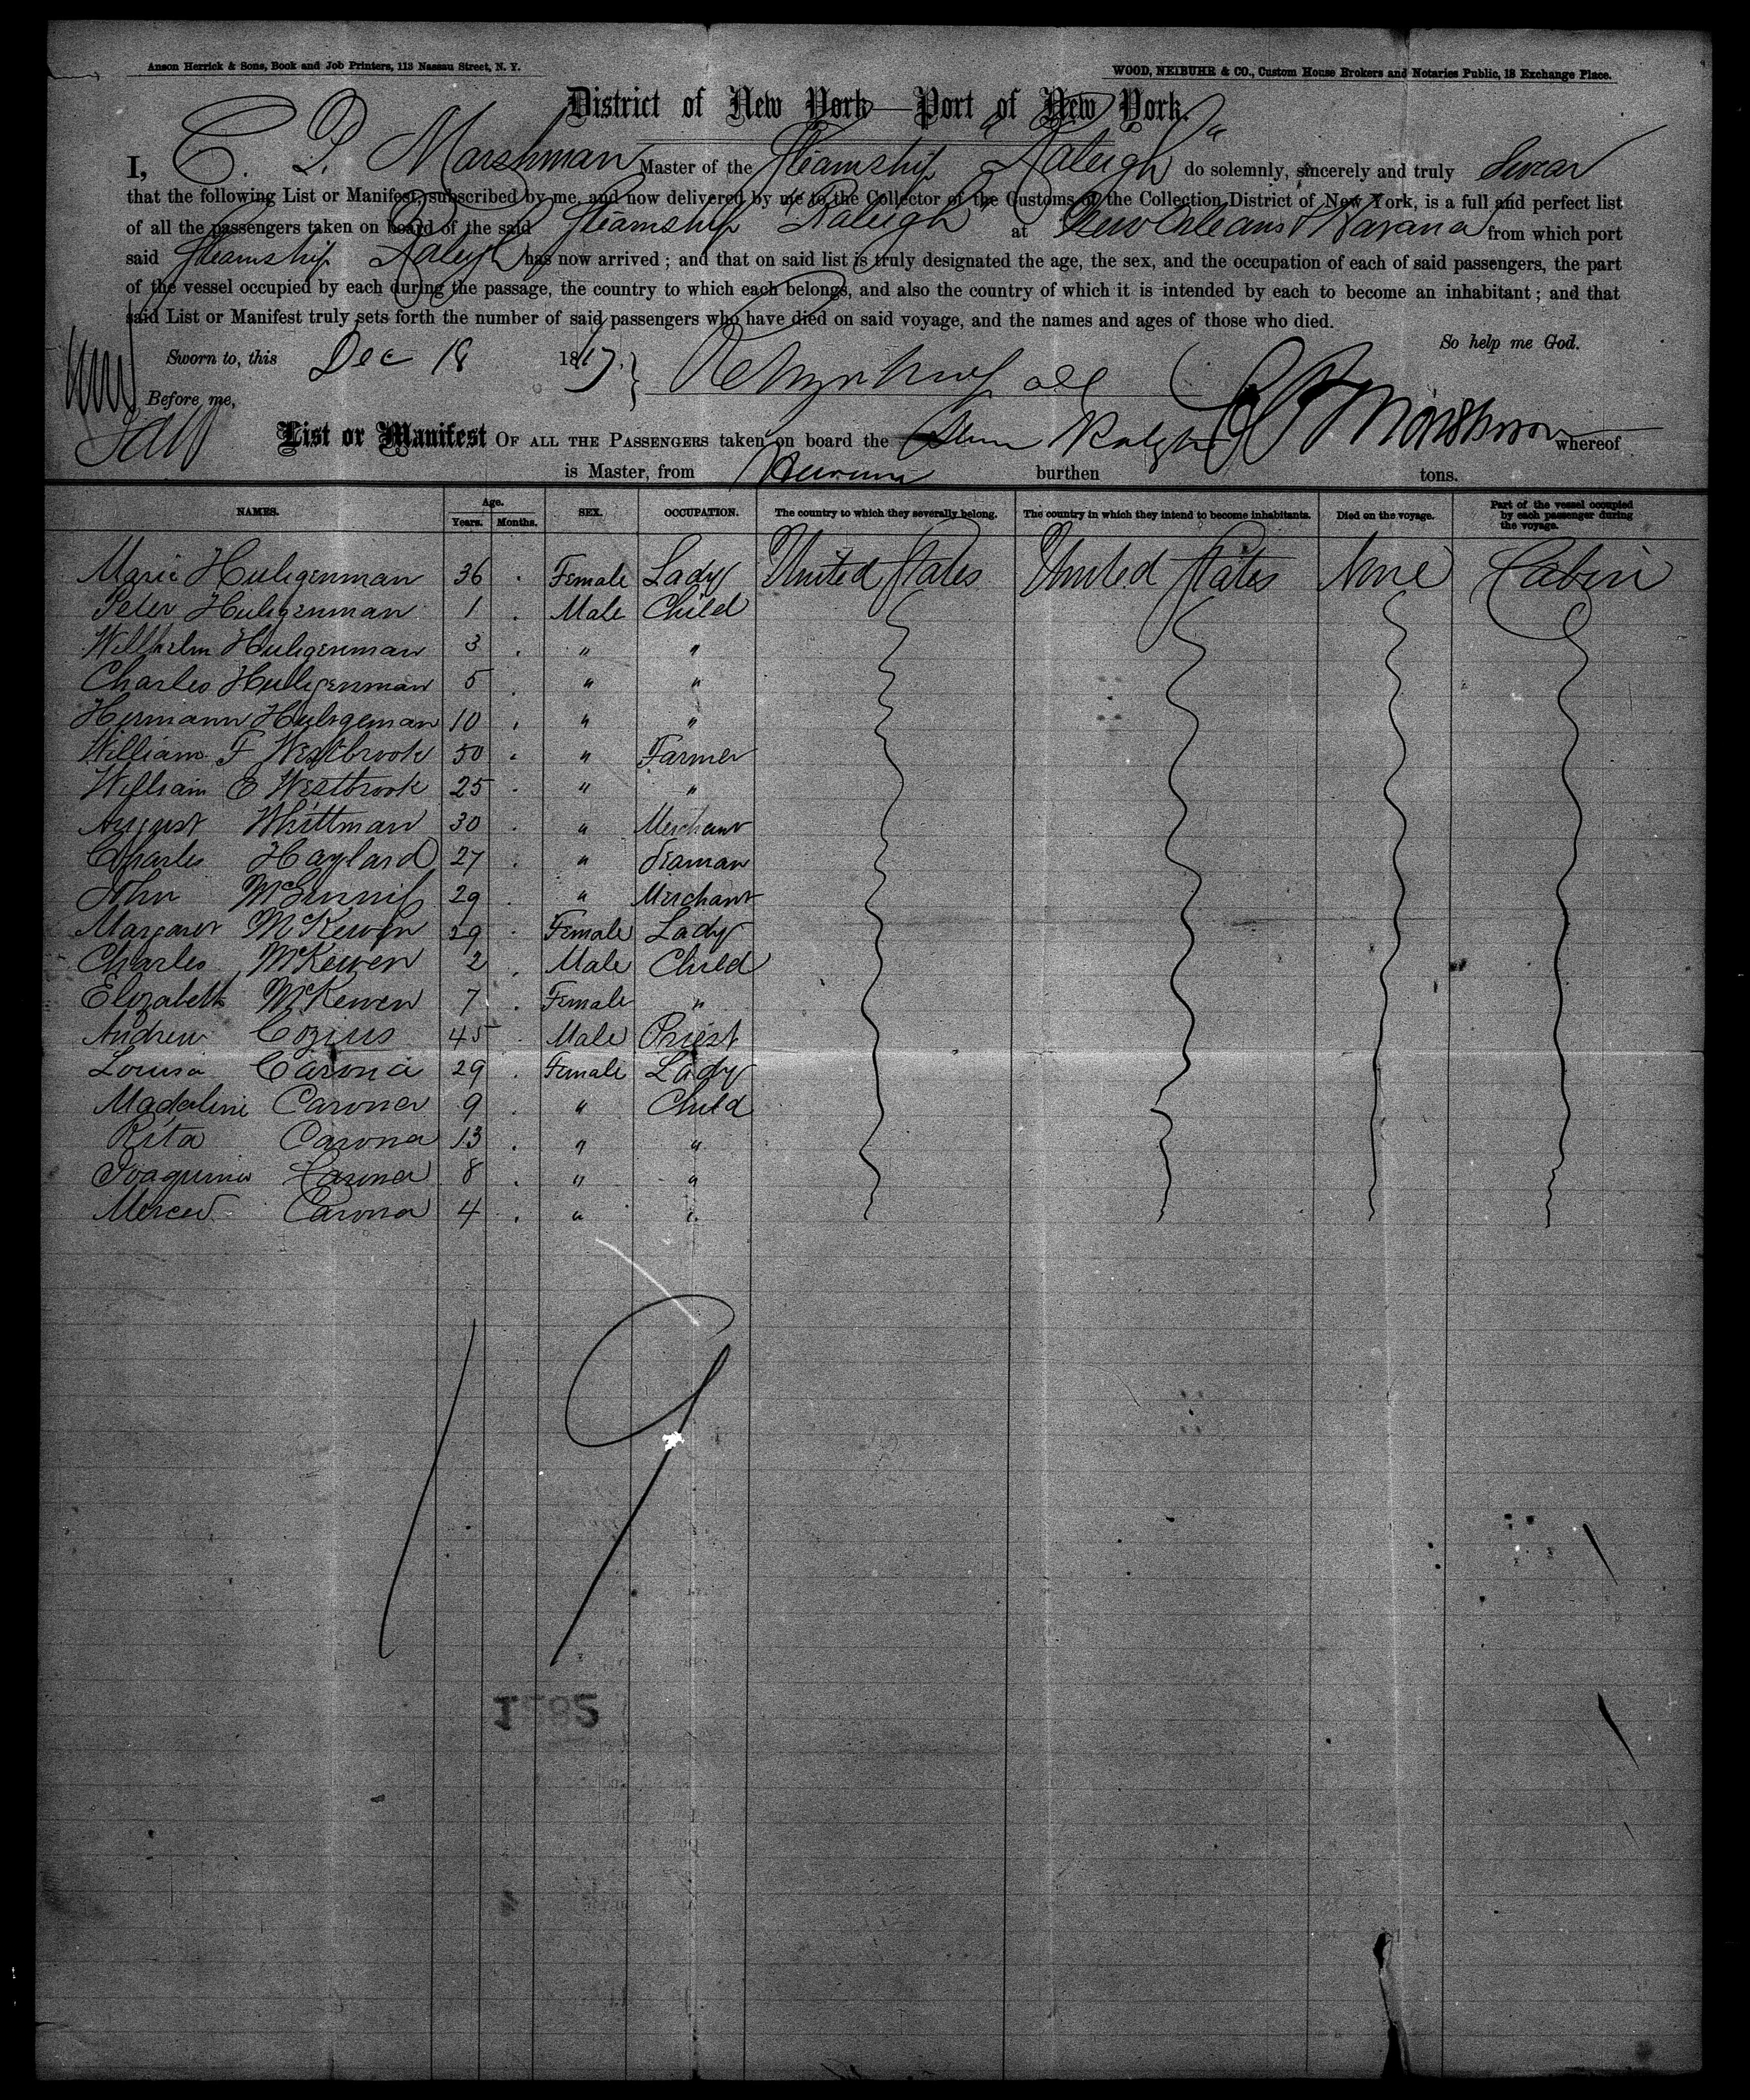 Anson Herrick & Sons, Book and Job Printers, 113 Nassau Street, N. Y.
WOOD, NEIBUHR & CO., Custom House Brokers and Notaries Public, 18 Exchange Place.
District of New York—Port of New York.
I, C. P. Marshman Master of the Steamship "Raleigh" do solemnly, sincerely and truly Swear
that the following List or Manifest, subscribed by me, and now delivered by me to the Collector of the Customs of the Collection District of New York, is a full and perfect list
of all the passengers taken on board of the said Steamship "Raleigh" at New Orleans & Havana from which port
said Steamship Raleigh has now arrived; and that on said list is truly designated the age, the sex, and the occupation of each of said passengers, the part
of the vessel occupied by each during the passage, the country to which each belongs, and also the country of which it is intended by each to become an inhabitant; and that
said List or Manifest truly sets forth the number of said passengers who have died on said voyage, and the names and ages of those who died.
So help me God.
Sworn to, this Dec 18 1867.
Before me,
List or Manifest OF ALL THE PASSENGERS taken on board the Raleigh Marshman whereof
is Master, from Havana burthen tons.
NAMES. Age. Years. Months. SEX. OCCUPATION. The country to which they severally belong. The country in which they intend to become inhabitants. Died on the voyage. Part of the vessel occupied by each passenger during the voyage.
Marie Huligenman 36 . Female Lady United States United States None Cabin
Peter Huligenman 1 . Male Child
Willhelm Huligenman 3 . " "
Charles Huligenman 5 . " "
Hermann Huligeman 10 . " "
William F Westbrook 50 . " Farmer
William E Westbrook 25 . " "
August Whittman 30 . " Merchant
Charles Haylard 27 . " Seaman
John McGinnis 29 . " Merchant
Margaret McKewen 29 . Female Lady
Charles McKewen 2 . Male Child
Elizabeth McKewen 7 . Female "
Andrew Cozius 45 . Male Priest
Louisa Carona 29 . Female Lady
Madaline Carona 9 . " Child
Rita Carona 13 . " "
Joaquina Carona 8 . " "
Merced Carona 4 . " "
19